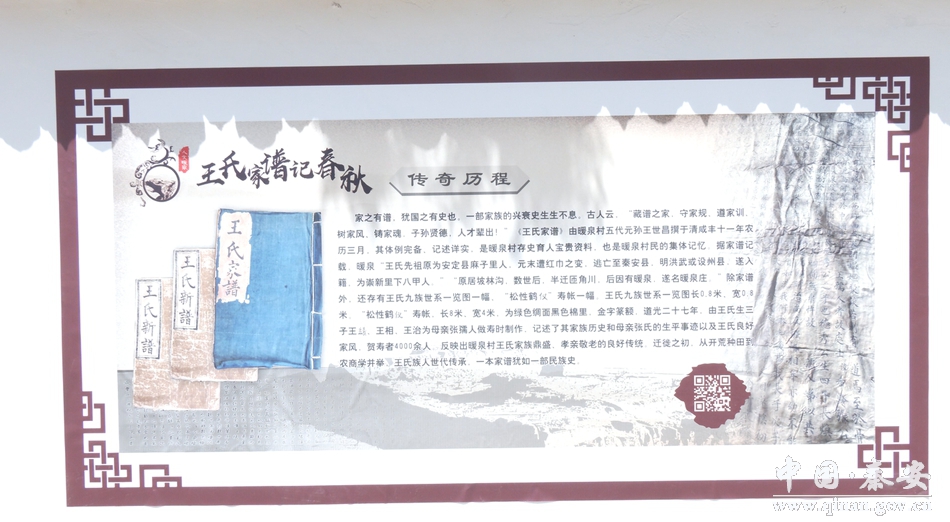 王氏家谱记春秋
传奇历程
家之有谱，犹国之有史也，一部家族的兴衰史生生不息，古人云，“藏谱之家，守家规，遵家训，
树家风，铸家魂，子孙贤德，人才辈出！”《王氏家谱》由暖泉村五代元孙王世昌撰于清咸丰十一年农
历三月，其体例完备，记述详实，是暖泉村存史育人宝贵资料，也是暖泉村民的集体记忆，据家谱记
载，暖泉“王氏先祖原为安定县麻子里人，元末遭红巾之变，逃亡至秦安县，明洪武或设州县，遂入
籍，为崇新里下八甲人。”“原居坡林沟，数世后，半迁匝角川，后因有暖泉，遂名暖泉庄，”除家谱
外，还存有王氏九族世系一览图一幅，“松性鹤仪”寿帐一幅，王氏九族世系一览图长0.8米，宽0.8
米，“松性鹤仪”寿帐，长8米，宽4米，为绿色绸面黑色棉里，金字篆额，道光二十七年，由王氏生三
子王喆，王相，王治为母亲张孺人做寿时制作，记述了其家族历史和母亲张氏的生平事迹以及王氏良好
家风，贺寿者4000余人，反映出暖泉村王氏家族鼎盛，孝亲敬老的良好传统，迁徙之初，从开荒种田到
农商学并举，王氏族人世代传承，一本家谱犹如一部民族史。
王氏家谱
王氏新谱
王氏新谱
中国·秦安
www.qinan.gov.cn